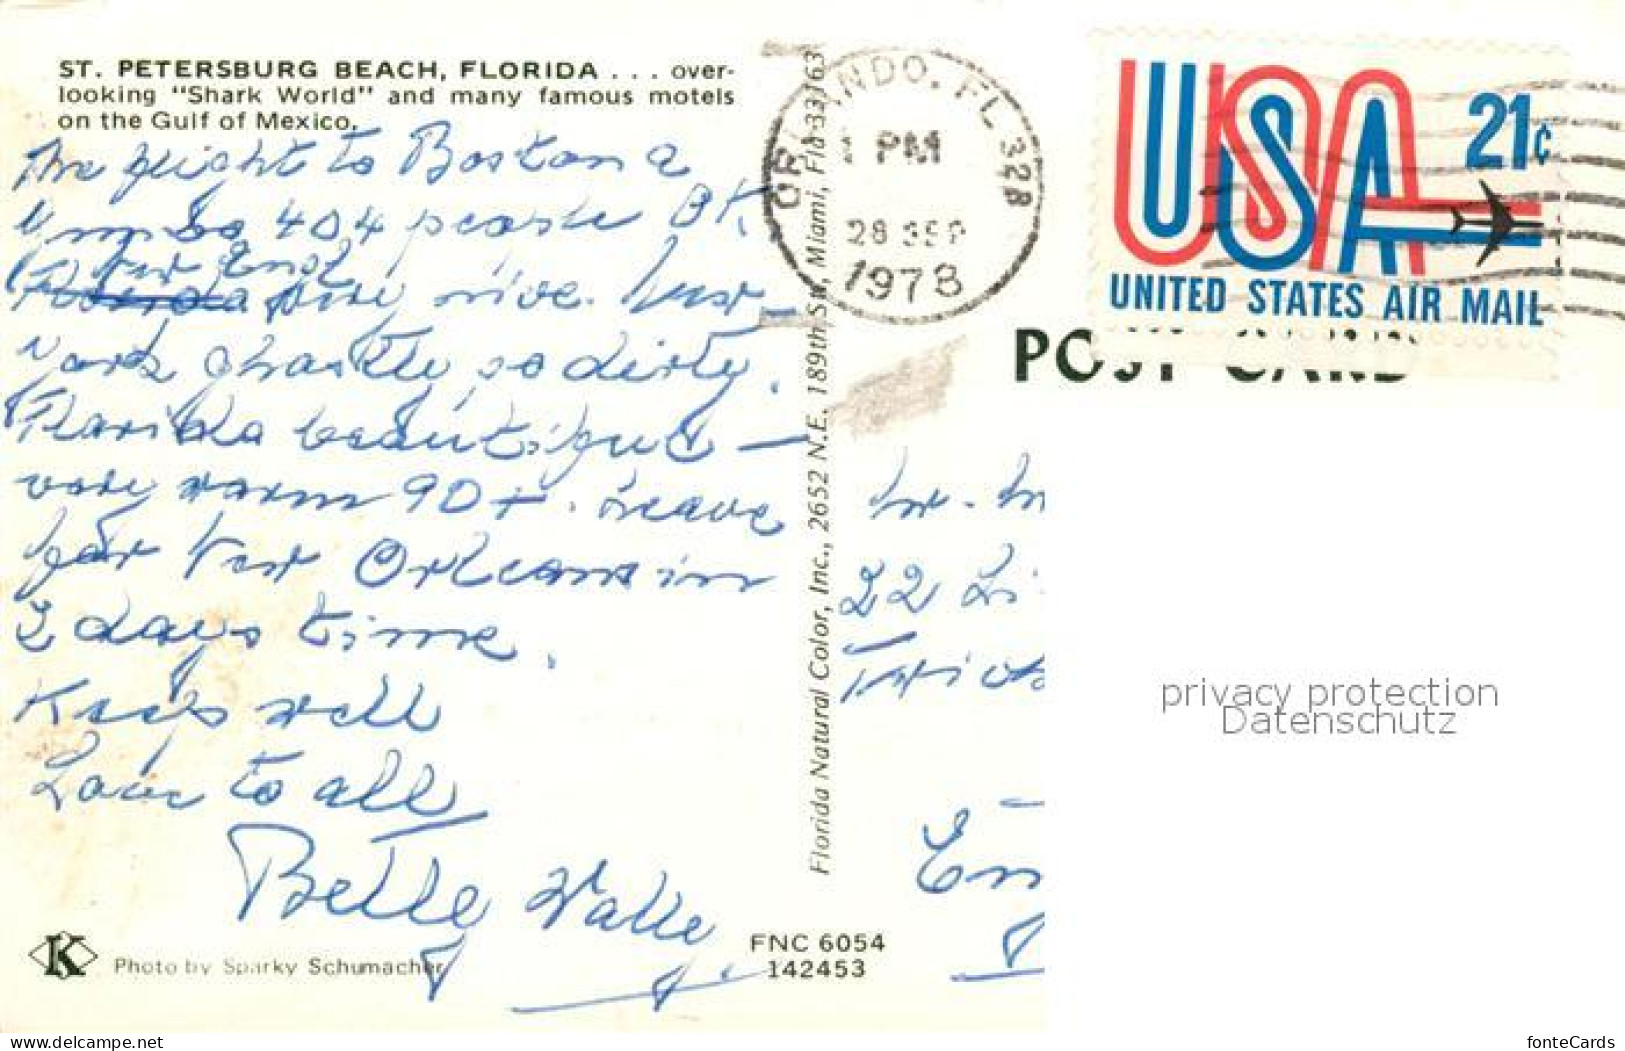 ST. PETERSBURG BEACH, FLORIDA . . . over-
looking "Shark World" and many famous motels
on the Gulf of Mexico.
The flight to Boston
404 people OK.
New Engl
Florida nice. New-
York ghastly so dirty.
Florida beautiful —
very warm 90+. Leave
for New Orleans in
2 days time.
Keep well
Love to all
Belle Walle
K
Photo by Sparky Schumacher
FNC 6054
142453
Florida Natural Color, Inc., 2652 N.E. 189th St., Miami, Fla 33163
ORLANDO, FL 328
PM
28 SEP
1978
USA 21c
UNITED STATES AIR MAIL
POST CARD
22 Li
privacy protection
Datenschutz
www.delcampe.net
fonteCards